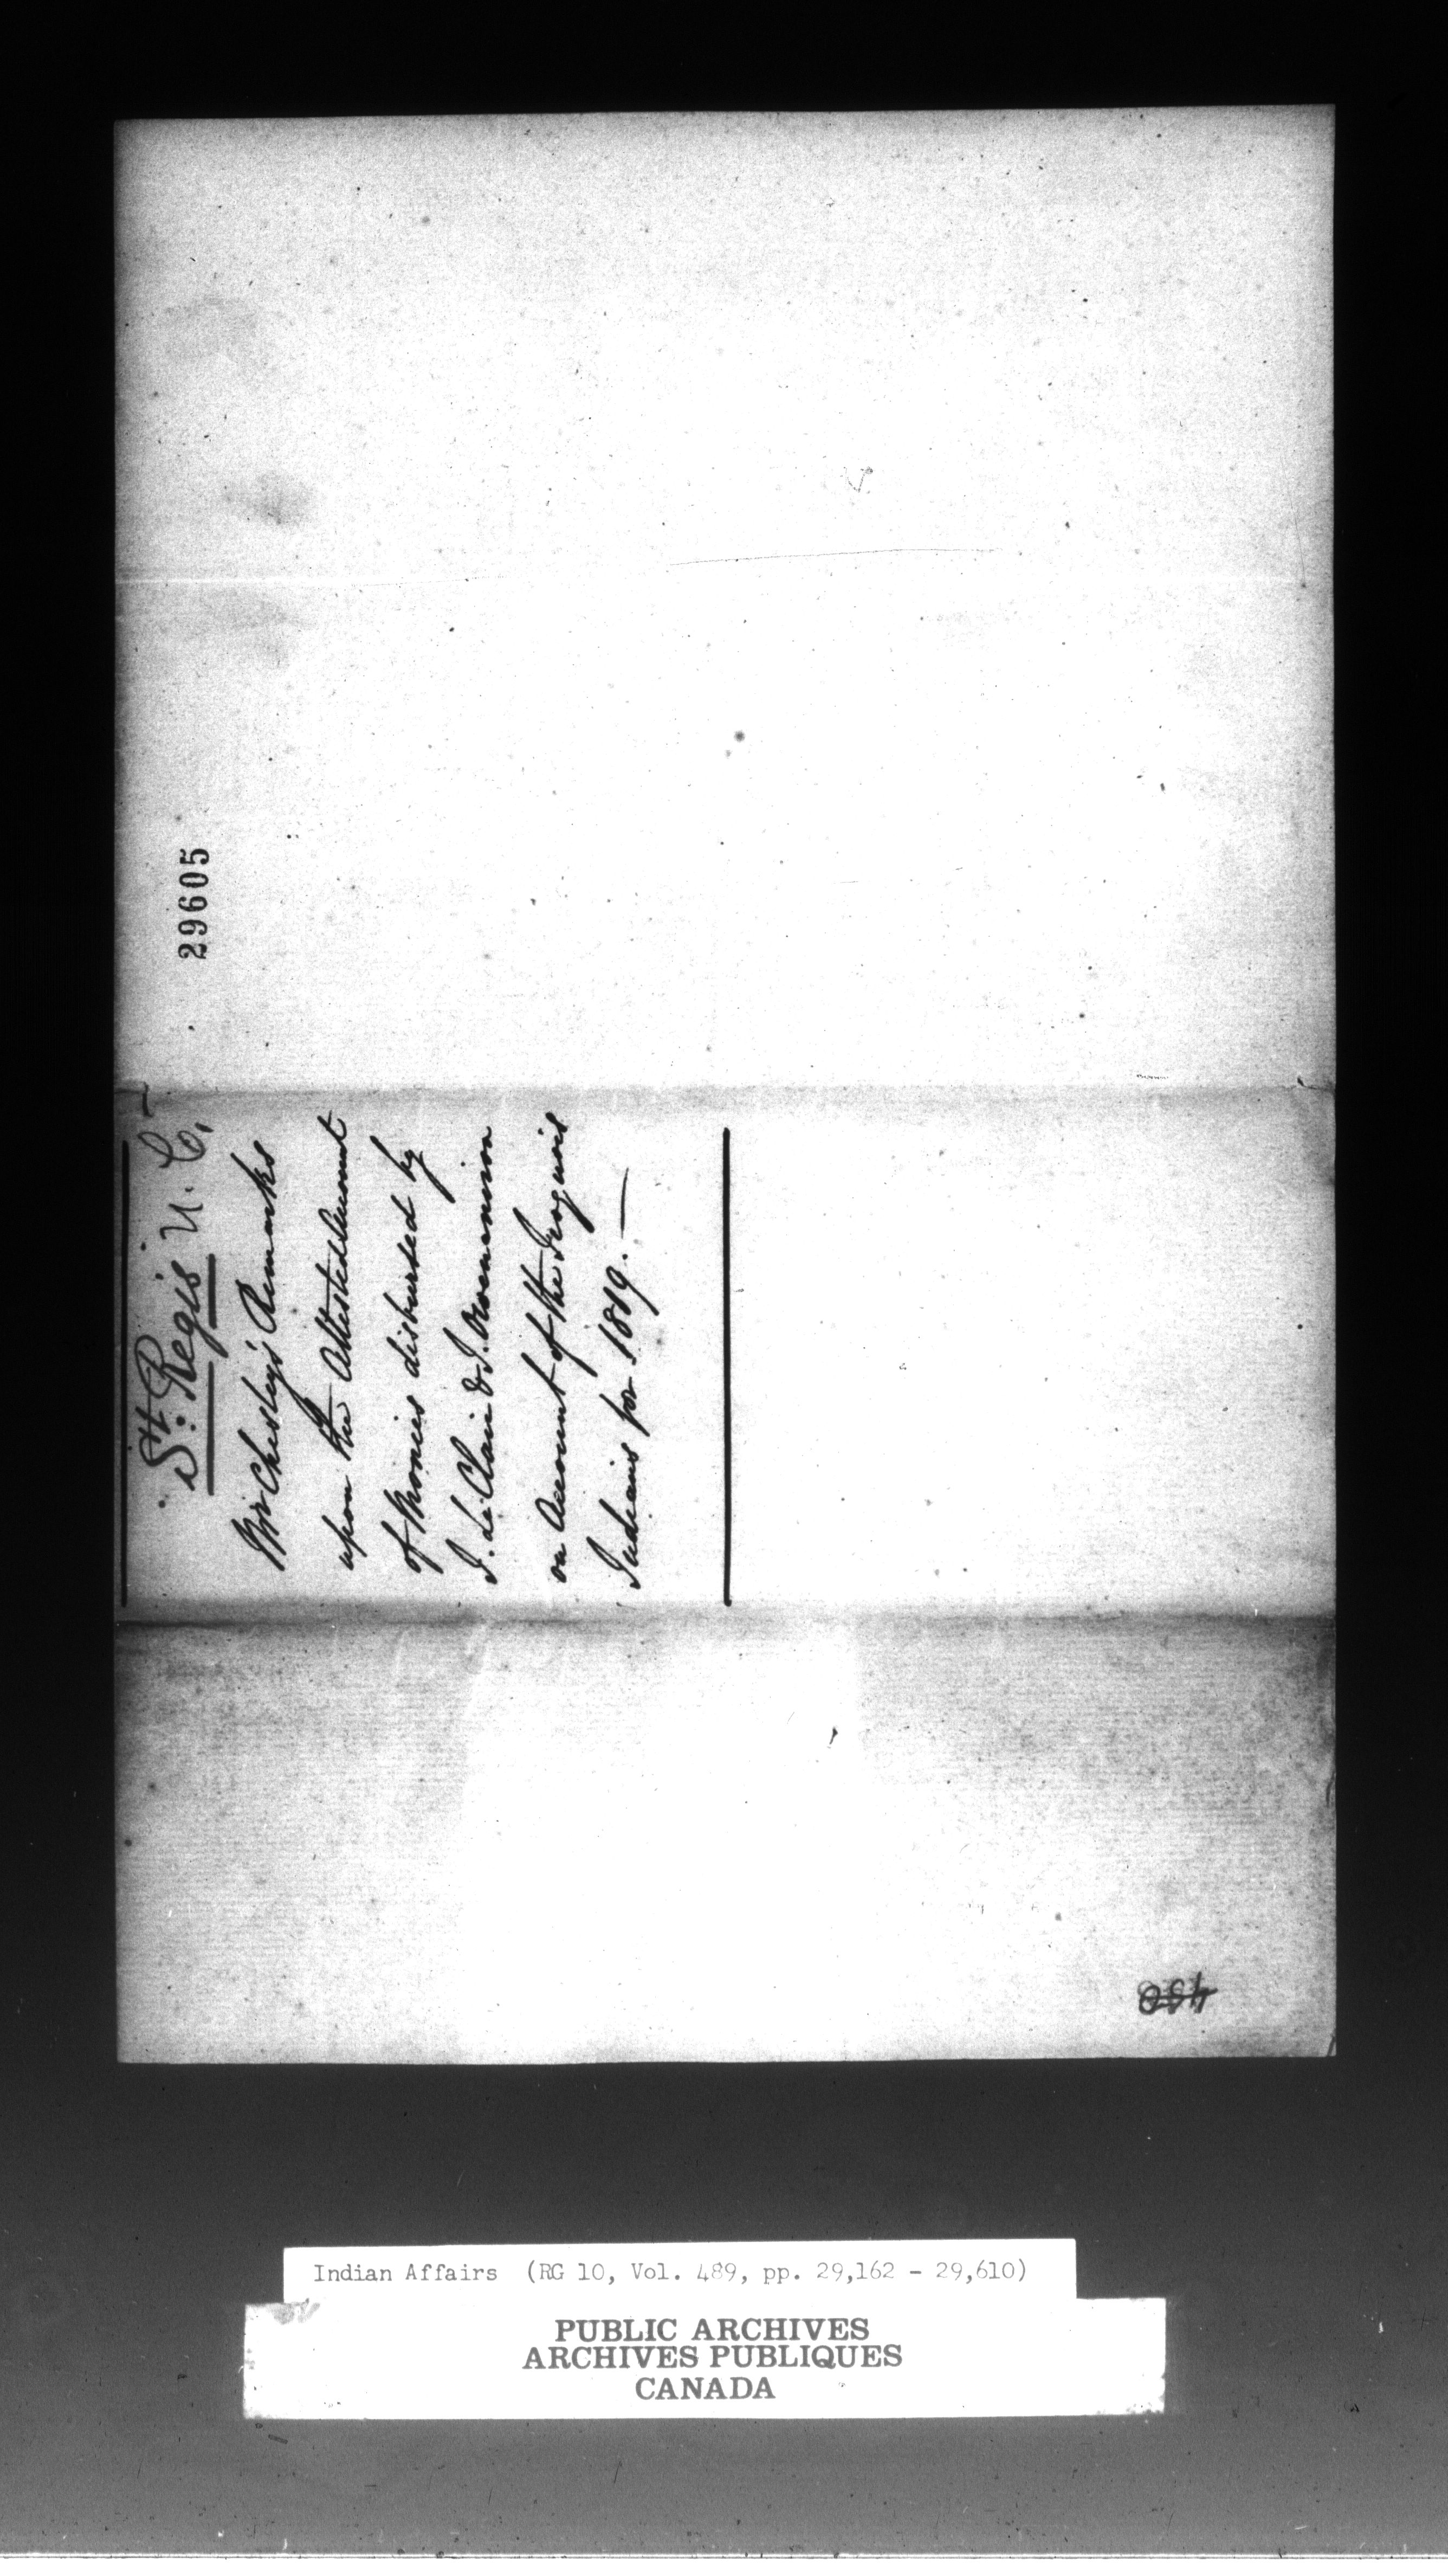 29605
St. Regis U. C.
Mr Chesley's Remarks
upon the Attested
of Monies disbursed by
on Account of the Iroquois
Indians for 1819.—
Indian Affairs (RG 10, Vol. 489, pp. 29,162 - 29,610)
PUBLIC ARCHIVES
ARCHIVES PUBLIQUES
CANADA